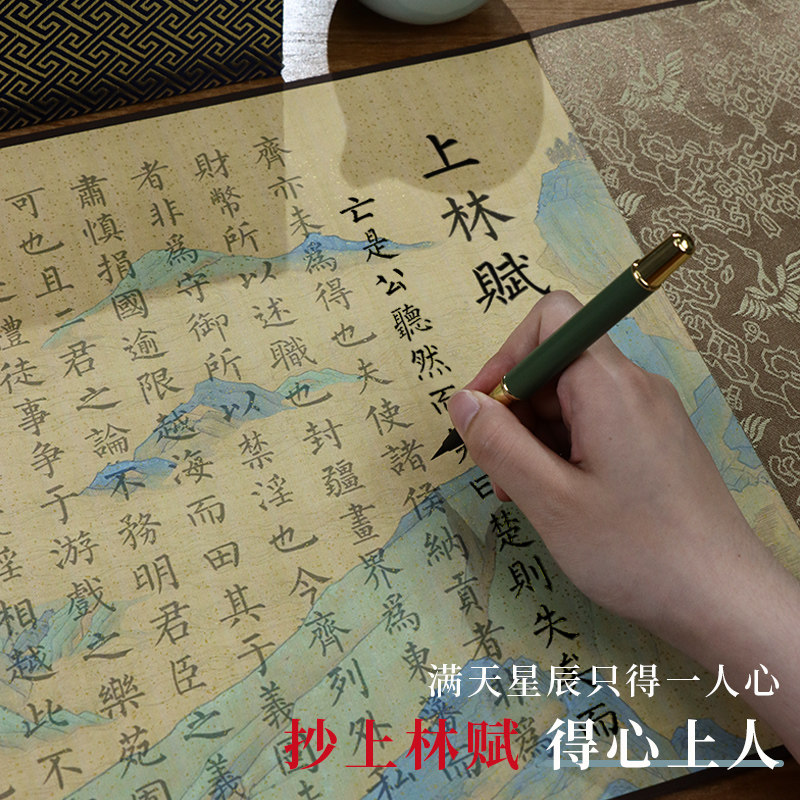 上林賦
亡是公聽然而
曰楚則失矣而
齊亦未爲得也夫使諸侯納貢者
爲
財幣所以述職也封疆畫界爲東藩而
者非爲守御所以禁淫也今齊列外私
肅慎捐國逾限越海而田其于義固
可也且二君之論不務明君臣之義
禮徒事爭于游戲之樂苑囿
淫相越此不
满天星辰只得一人心
抄上林赋 得心上人